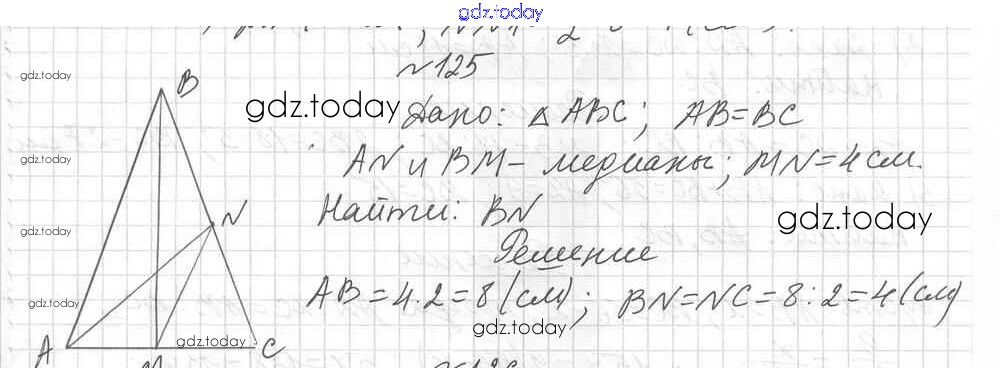 gdz.today
№125
gdz.today
B
gdz.today
Дано: △ ABC; AB=BC
gdz.today
AN и BM – медианы; MN=4см.
N
Найти: BN
gdz.today
gdz.today
Решение
gdz.today
AB=4·2=8(см); BN=NC=8:2=4(см)
gdz.today
gdz.today
A
C
M